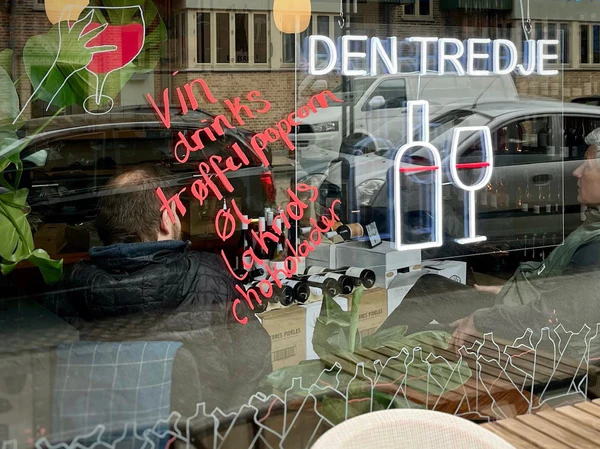 DEN TREDJE
Vin
drinks
trøffel popcorn
Øl
Lakrids
chokolader